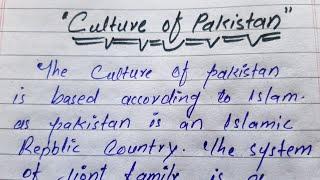 "Culture of Pakistan"
The Culture of pakistan
is based according to Islam.
as pakistan is an Islamic
Repblic Country. The system
of Jiont family is a